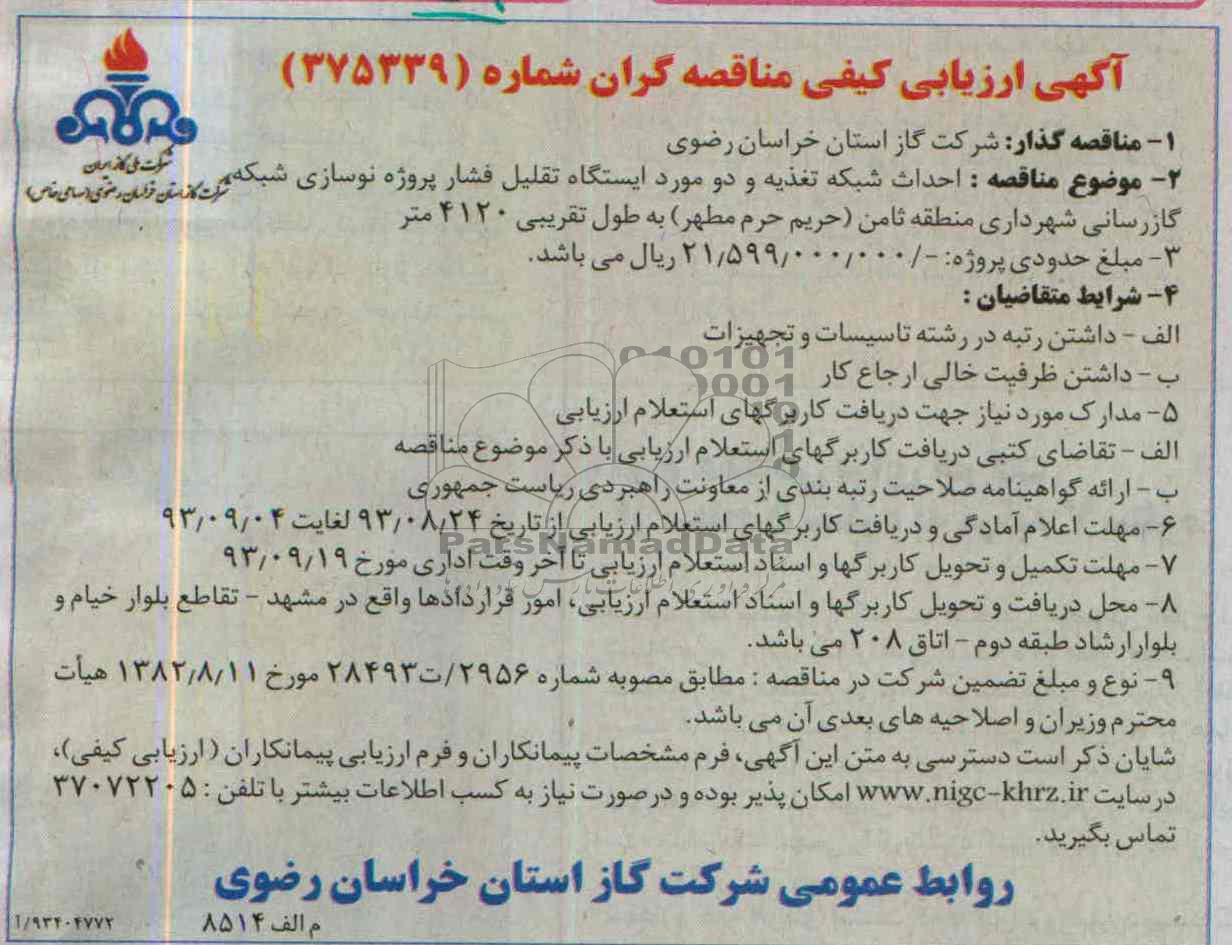 آگهی ارزیابی کیفی مناقصه گران شماره (۳۷۵۳۳۹)
شرکت ملی گاز ایران
شرکت گاز استان خراسان رضوی (سهامی خاص)
۱- مناقصه گذار: شرکت گاز استان خراسان رضوی
۲- موضوع مناقصه : احداث شبکه تغذیه و دو مورد ایستگاه تقلیل فشار پروژه نوسازی شبکه
گازرسانی شهرداری منطقه ثامن (حریم حرم مطهر) به طول تقریبی ۴۱۲۰ متر
۳- مبلغ حدودی پروژه: -/۲۱٫۵۹۹٫۰۰۰٫۰۰۰ ریال می باشد.
۴- شرایط متقاضیان :
الف - داشتن رتبه در رشته تاسیسات و تجهیزات
ب - داشتن ظرفیت خالی ارجاع کار
۵- مدارک مورد نیاز جهت دریافت کاربرگهای استعلام ارزیابی
الف - تقاضای کتبی دریافت کاربرگهای استعلام ارزیابی با ذکر موضوع مناقصه
ب - ارائه گواهینامه صلاحیت رتبه بندی از معاونت راهبردی ریاست جمهوری
۶- مهلت اعلام آمادگی و دریافت کاربرگهای استعلام ارزیابی از تاریخ ۹۳٫۰۸٫۲۴ لغایت ۹۳٫۰۹٫۰۴
۷- مهلت تکمیل و تحویل کاربرگها و اسناد استعلام ارزیابی تا آخر وقت اداری مورخ ۹۳٫۰۹٫۱۹
ParsNamadData
۸- محل دریافت و تحویل کاربرگها و اسناد استعلام ارزیابی، امور قراردادها واقع در مشهد - تقاطع بلوار خیام و
بلوار ارشاد طبقه دوم - اتاق ۲۰۸ می باشد.
۹- نوع و مبلغ تضمین شرکت در مناقصه : مطابق مصوبه شماره ۲۹۵۶/ت۲۸۴۹۳ مورخ ۱۳۸۲٫۸٫۱۱ هیأت
محترم وزیران و اصلاحیه های بعدی آن می باشد.
شایان ذکر است دسترسی به متن این آگهی، فرم مشخصات پیمانکاران و فرم ارزیابی پیمانکاران (ارزیابی کیفی)،
در سایت www.nigc-khrz.ir امکان پذیر بوده و در صورت نیاز به کسب اطلاعات بیشتر با تلفن : ۳۷۰۷۲۲۰۵
تماس بگیرید.
روابط عمومی شرکت گاز استان خراسان رضوی
م الف ۸۵۱۴
۹۳۴۰۴۷۷۲/آ